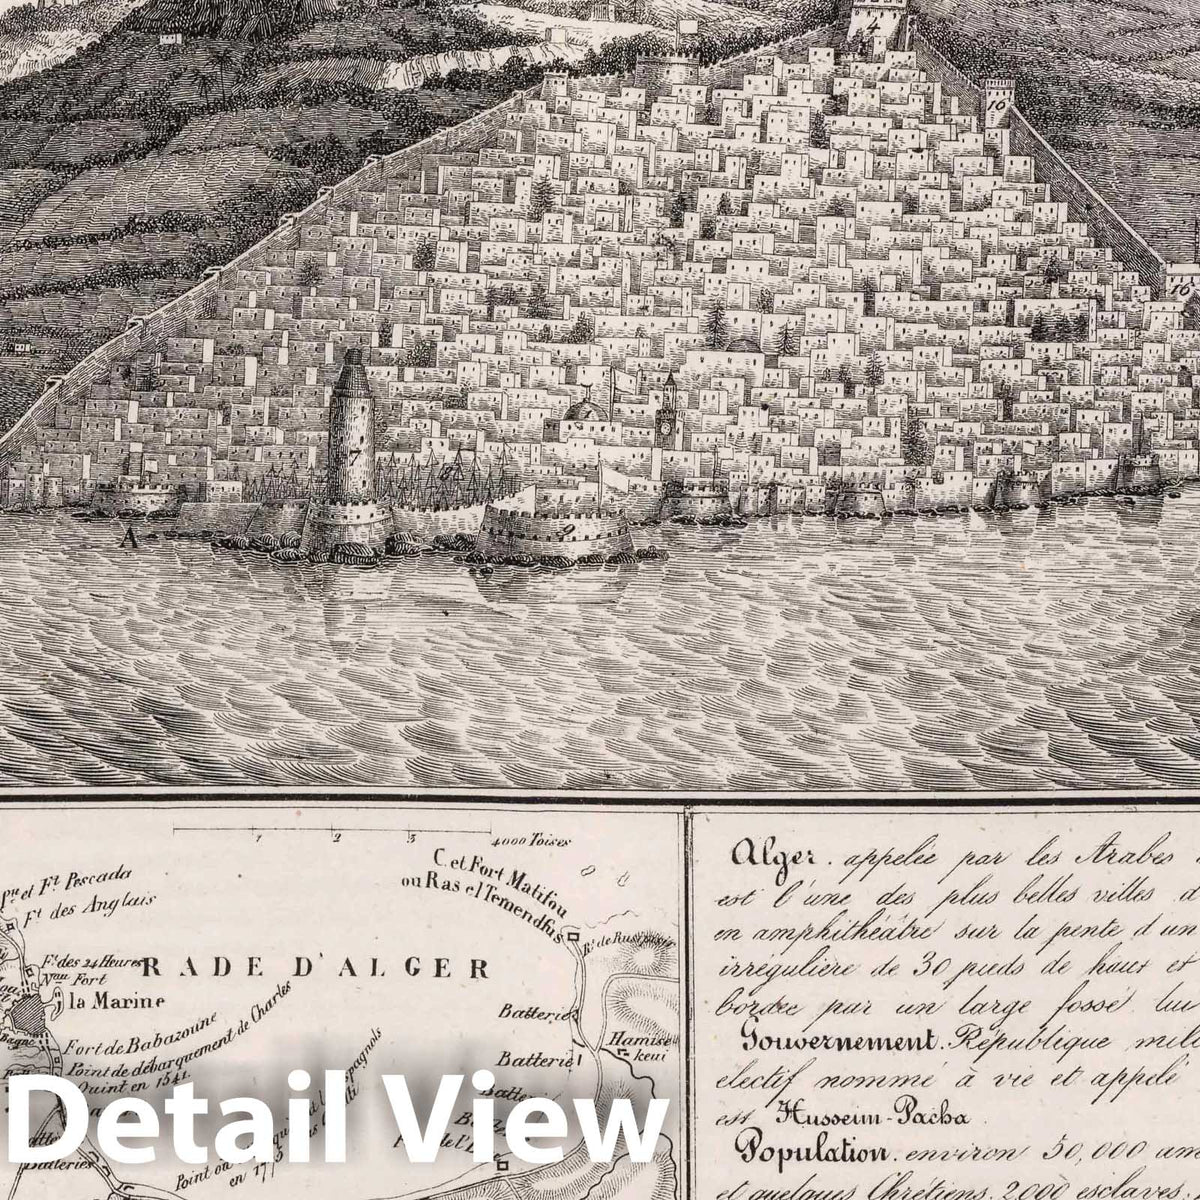 4
16
16
7
9
A
1 2 3 4000 Toises
C. et Fort Matifou
ou Ras el Temendfus
Pte et Ft Pescada
Ft des Anglais
Rs de Rusipisir
Ft des 24 Heures
RADE D'ALGER
Nou Fort
la Marine
Batterie
Bagne
Fort de Babazoune
Hamise
keui
Point de débarquement de Charles
Quint en 1541.
Batterie
Detail View
Batteries
en 1775
Alger. appelée par les Arabes
est l'une des plus belles villes d
en amphithéâtre sur la pente d'un
irrégulière de 30 pieds de haut et
bordée par un large fossé. lui
Gouvernement. République mili
electif nommé à vie et appelé
est Husseim-Pacha.
Population. environ 50,000 am
et quelques Chrétiens, 2000 esclaves